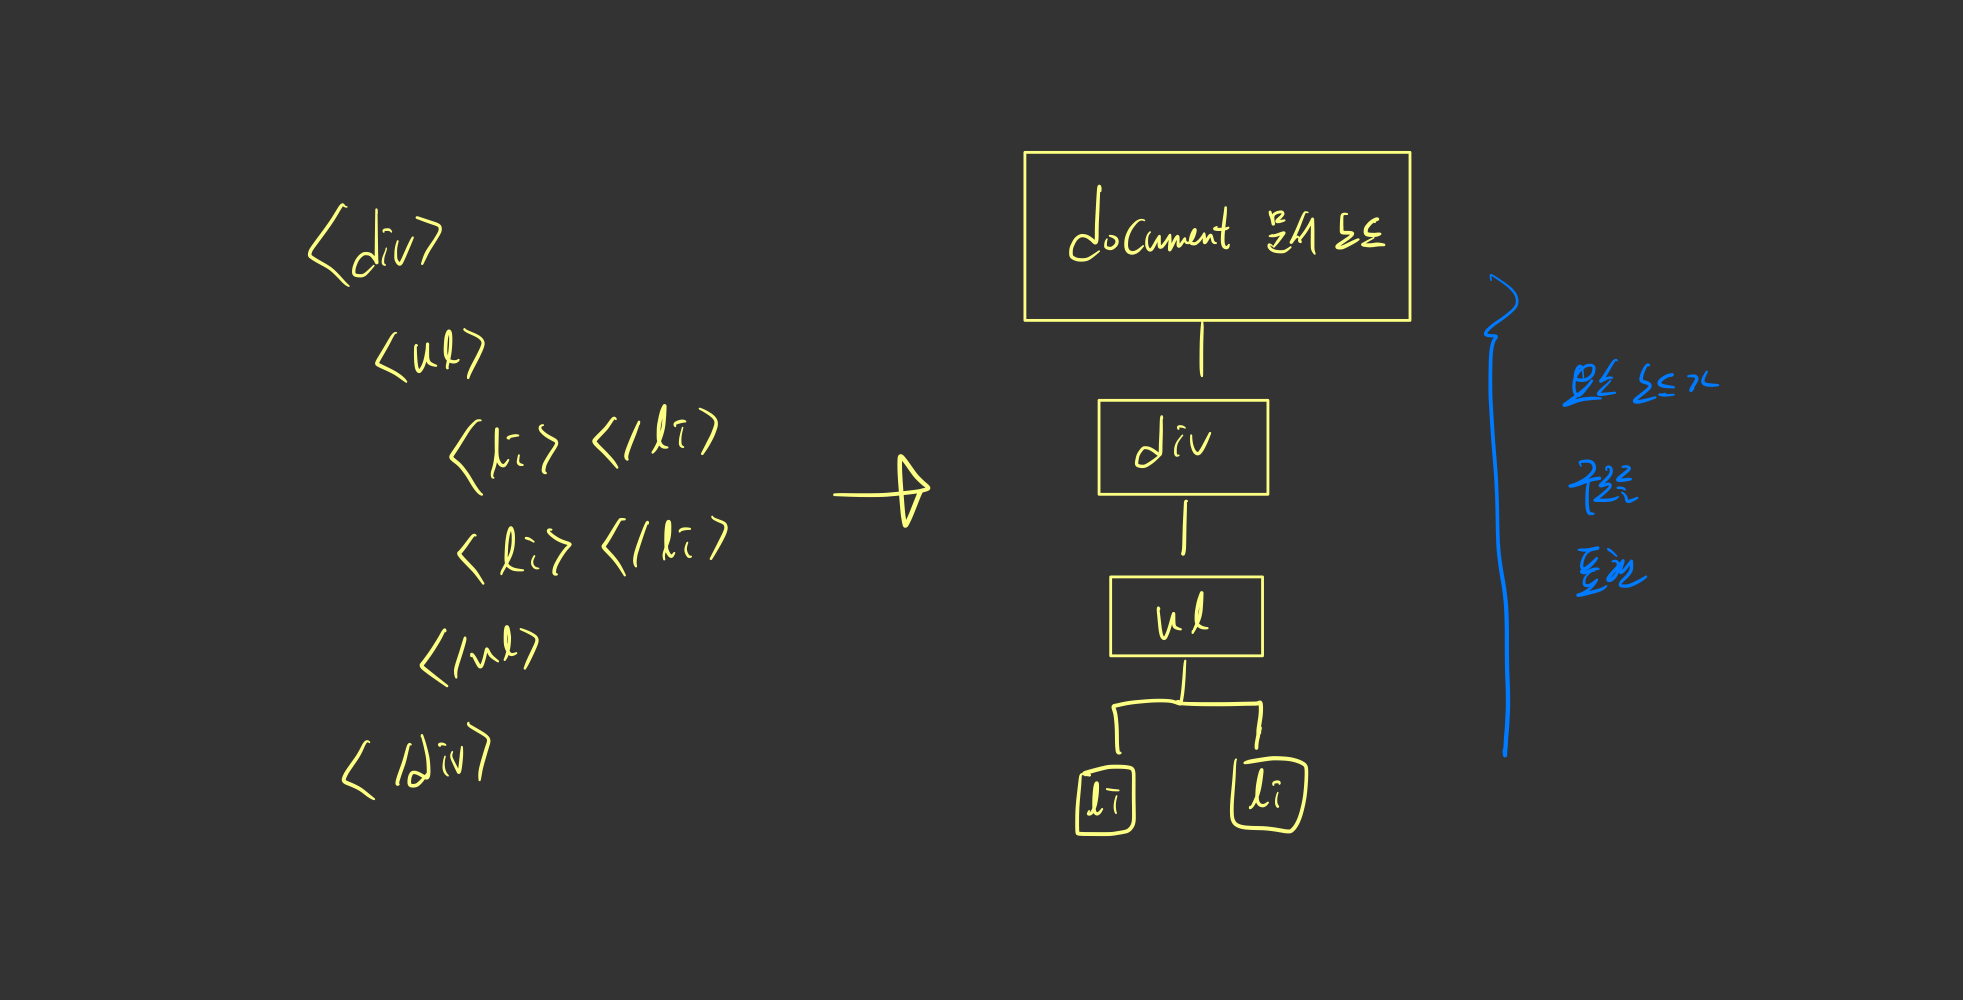 <div>
<ul>
<li> </li>
<li> </li>
</ul>
</div>
document 문서 노드
div
ul
li
li
모든 노드가